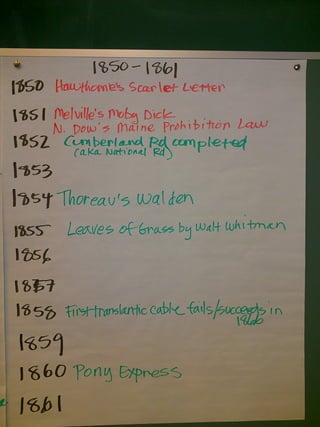 1850-1861
1850 Hawthorne's Scarlet Letter
1851 Melville's Moby Dick
N. Dow's Maine Prohibition Law
1852 Cumberland Rd completed
(aka National Rd)
1853
1854 Thoreau's Walden
1855 Leaves of Grass by Walt Whitman
1856
1857
1858 First translantic cable fails/succeeds in
1866
1859
1860 Pony Express
1861